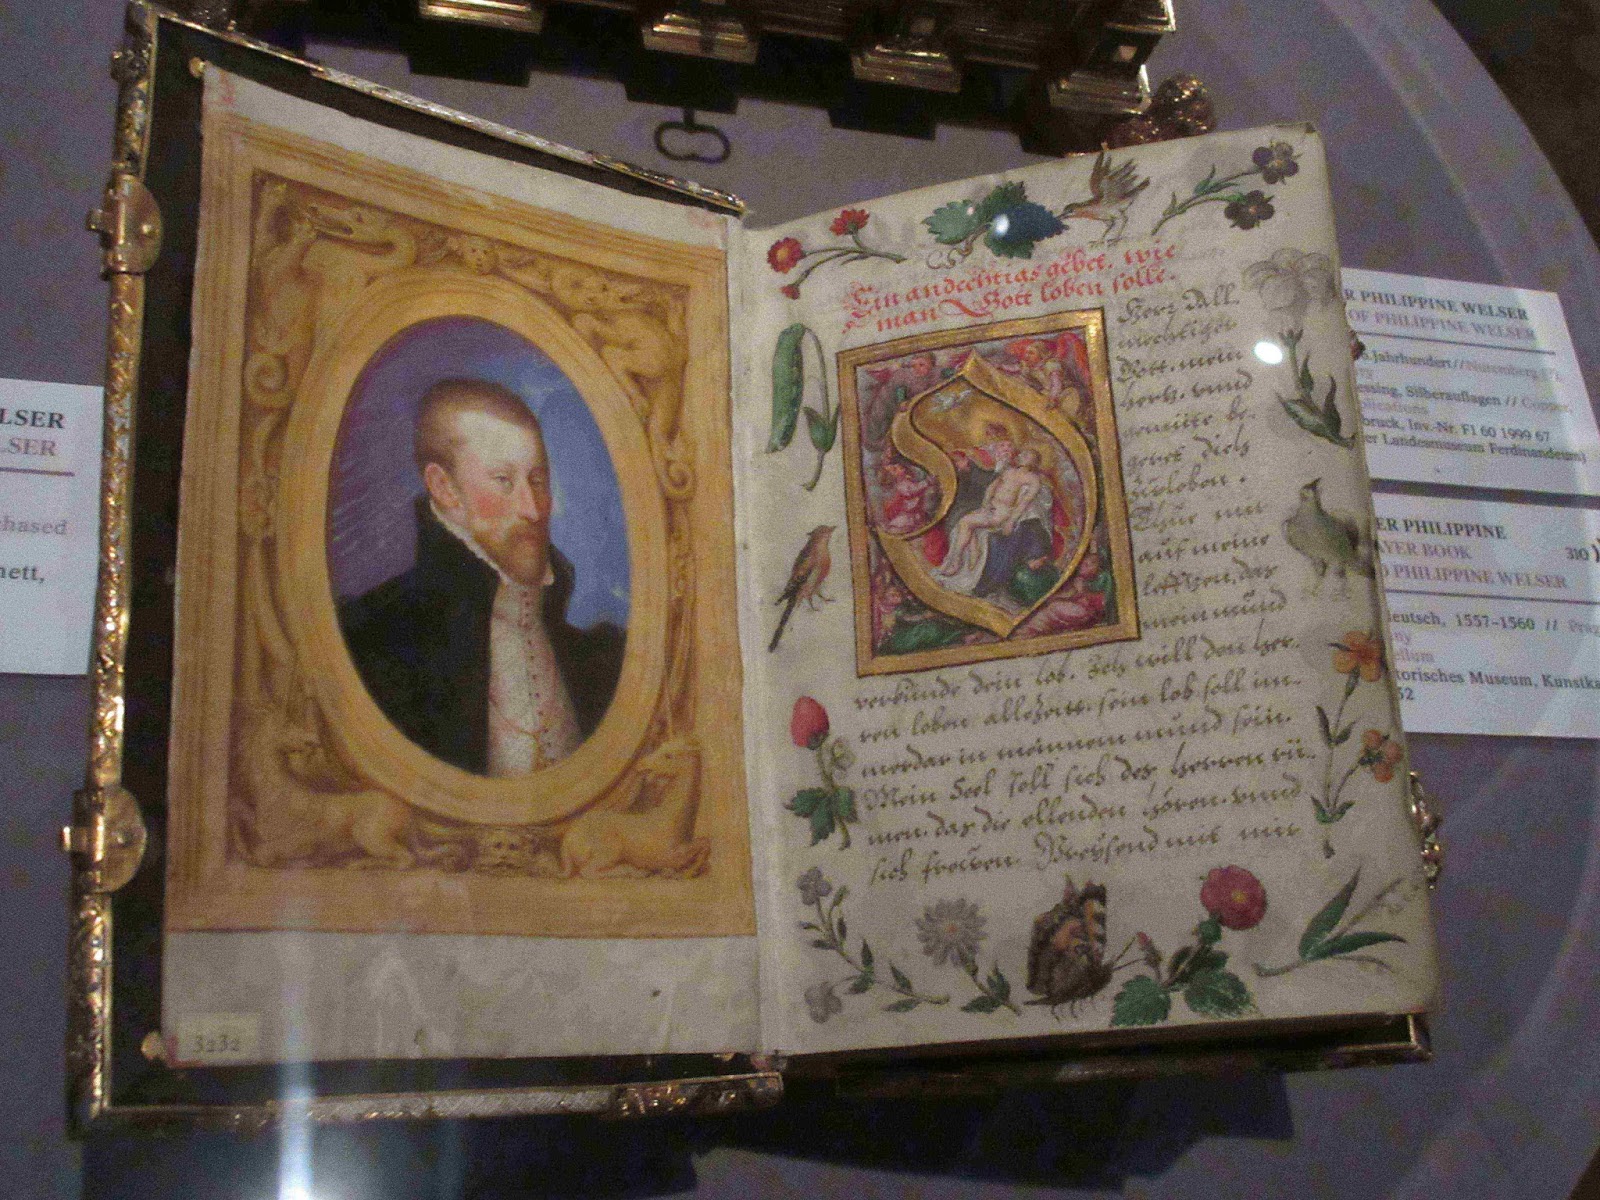 LSER
LSER
chased
nett,
3232
Ein andechtigs gebet, wie
man Gott loben solle.
Herr All-
mechtiger
Gott, mein
hertz, vnnd
gemüte be-
geret dich
zuloben.
Thue mir
auf meine
lefftzen, das
mein mund
verkünde dein lob. Ich will den Her-
ren loben allezeit, sein lob soll im-
merdar in meinem mund sein.
Mein Seel soll sich des herren rü-
men, das die ellenden hören, vnnd
sich frewen. Preysend mit mir
R PHILIPPINE WELSER
OF PHILIPPINE WELSER
Jahrhundert // Nuremberg
essing, Silberauflagen // Copper,
plications
bruck, Inv.-Nr. F1 60 1999 67
er Landesmuseum Ferdinandeum)
ER PHILIPPINE
AYER BOOK
310
PHILIPPINE WELSER
deutsch, 1557-1560 //
ny
ellum
torisches Museum, Kunstka
32